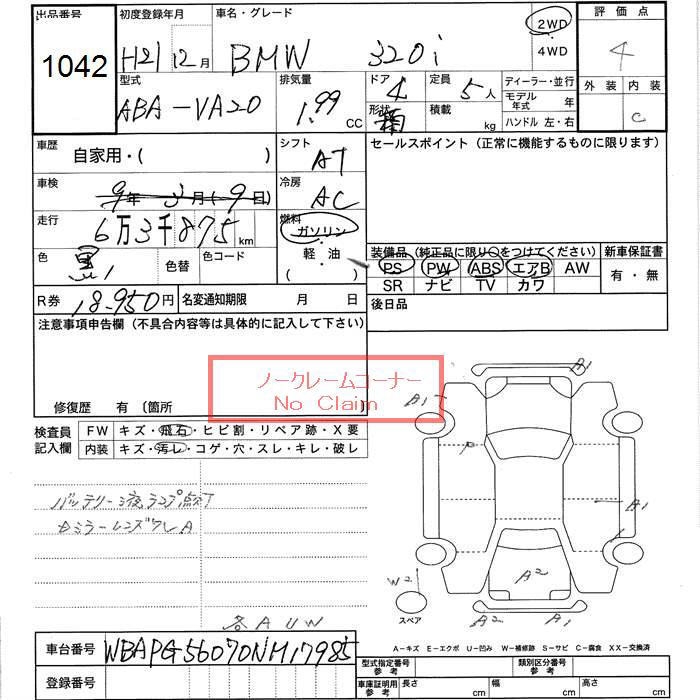 出品番号 初度登録年月 車名・グレード 2WD 4WD 評価点
1042 H21 12月 BMW 320i 4
型式 排気量 ドア 定員 ディーラー・並行 外装 内装
ABA-VA20 1.99 CC 4 5人 モデル年式 年 C
形状 積載 kg ハンドル 左・右
車歴 自家用・( ) シフト AT セールスポイント（正常に機能するものに限ります）
車検 9年3月(9日) 冷房 AC
走行 6万3千875km 燃料 ガソリン
色 黒 色替 色コード 軽・油 ( )
装備品（純正品に限り○をつけてください） 新車保証書
PS PW ABS エアB AW 有・無
SR ナビ TV カワ
R券 18,950円 名変通知期限 月 日 後日品
注意事項申告欄（不具合内容等は具体的に記入して下さい）
ノークレームコーナー
No Claim
修復歴 有 〔箇所
検査員記入欄 FW キズ・飛石・ヒビ割・リペア跡・X要
内装 キズ・汚レ・コゲ・穴・スレ・キレ・破レ
A1
A1
P
バッテリー液ランプ点灯
ミラーレンズワレA
A1
W2 A2
スペア
各AUW A2 A1
A－キズ E－エクボ U－凹み W－補修跡 S－サビ C－腐食 XX－交換済
車台番号 WBAPG56070NM17985
型式指定番号 参考 類別区分番号 参考
登録番号 車庫証明用 参考 長さ cm 幅 cm 高さ cm